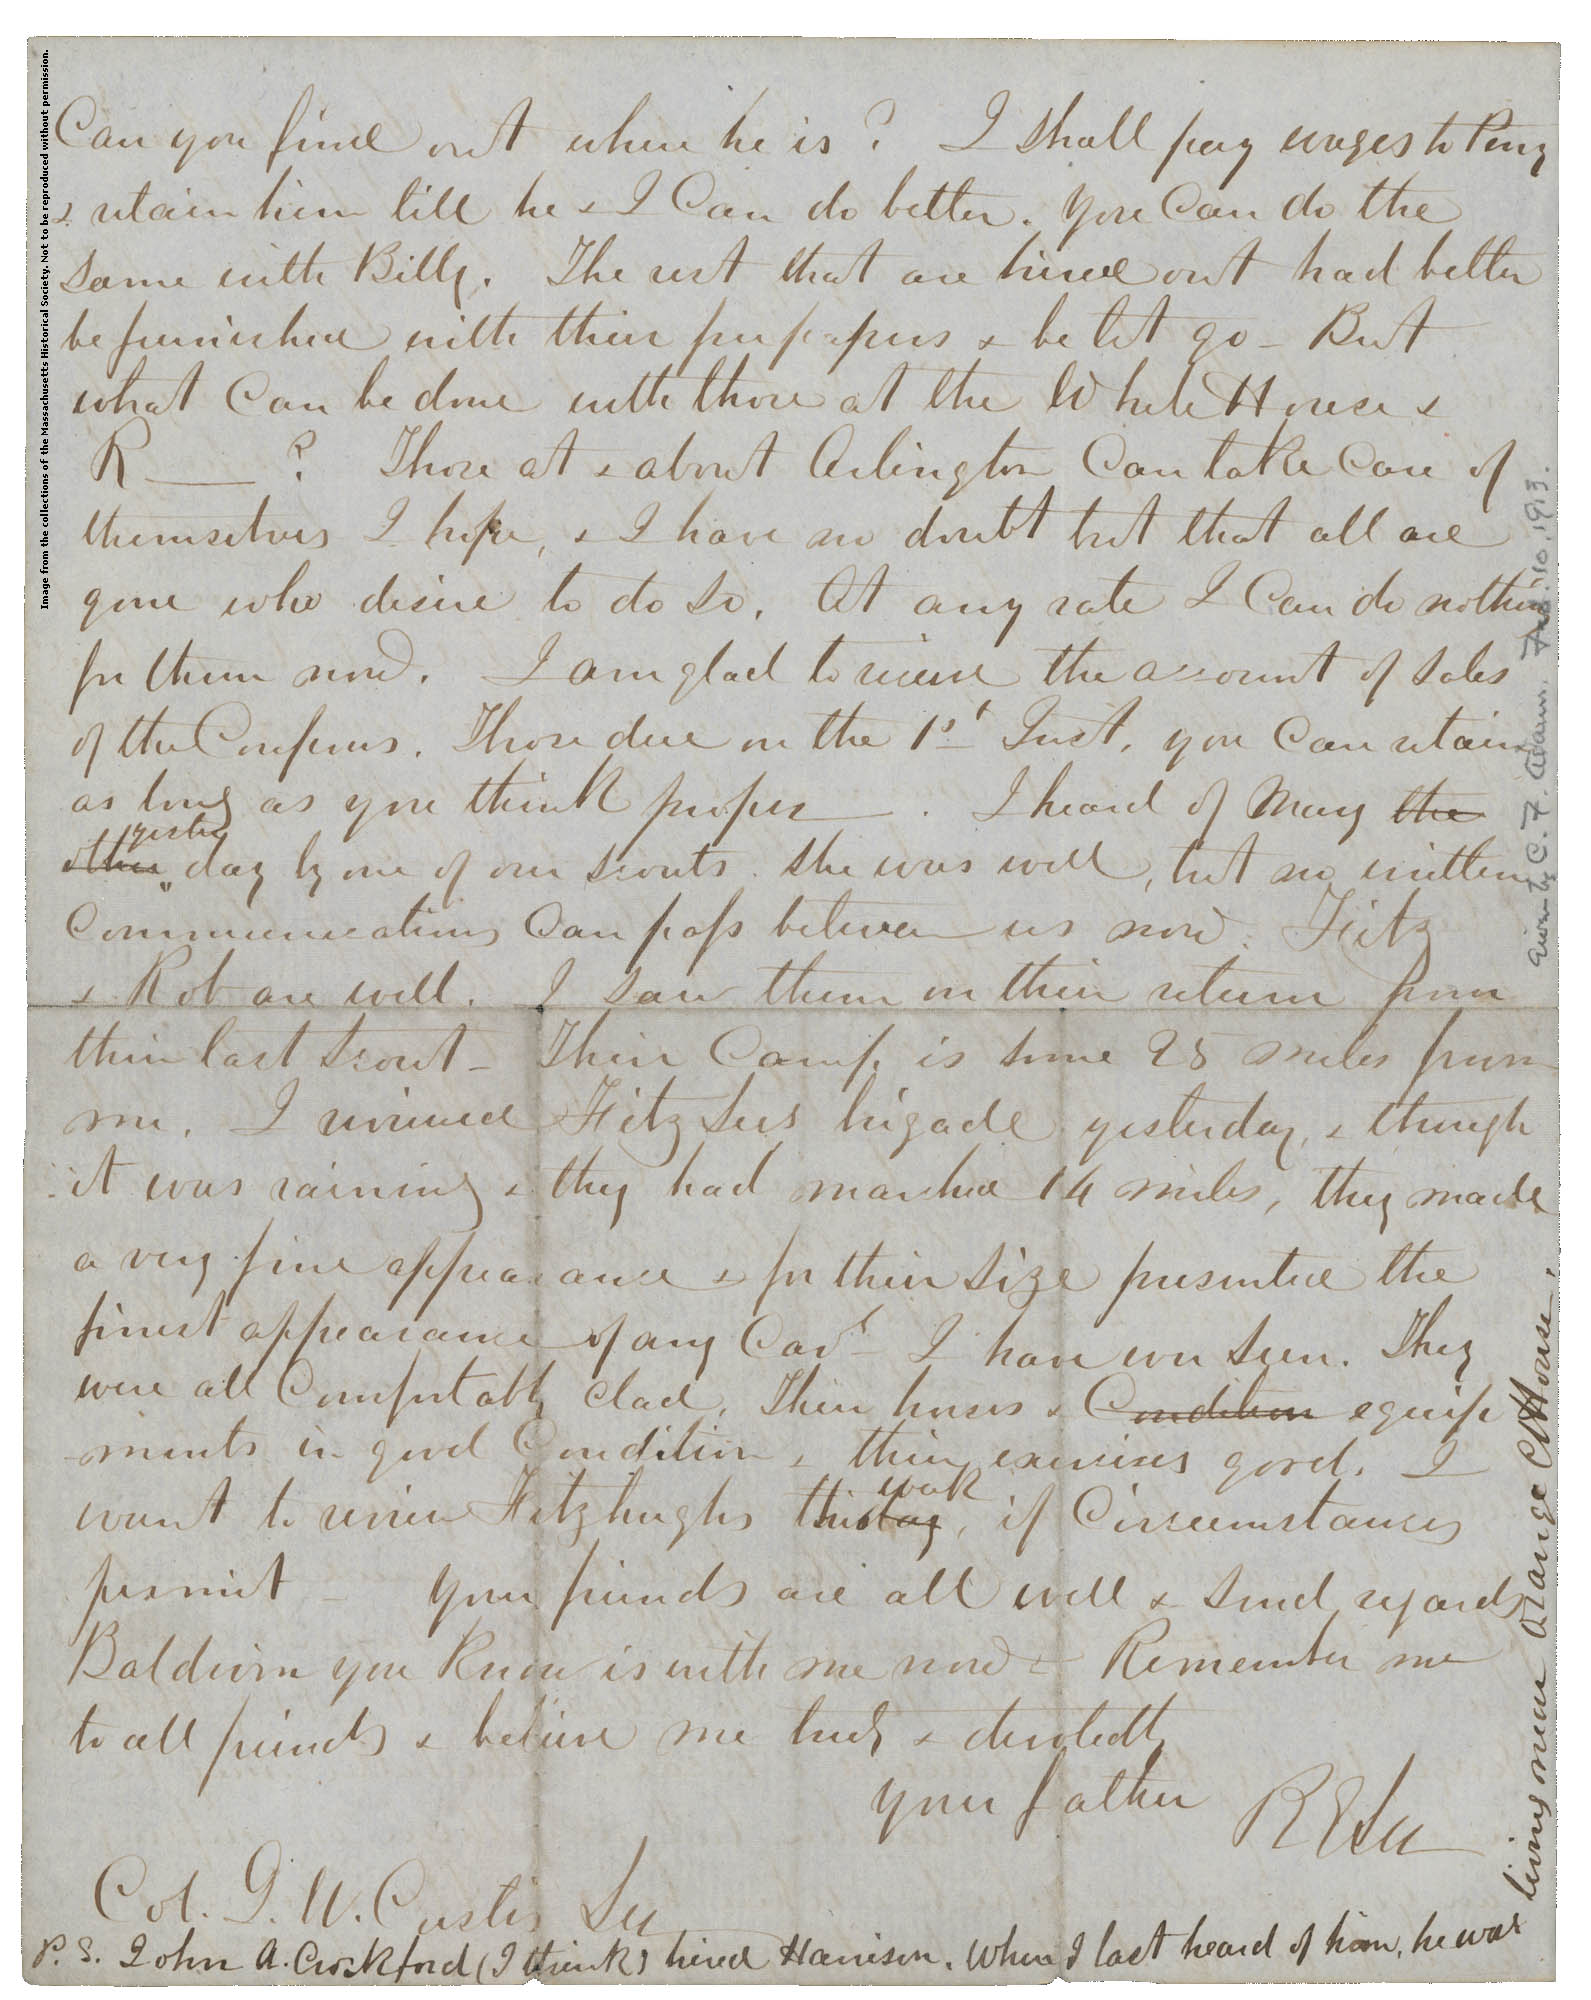 Can you find out where he is? I shall pay wages to Perry
& retain him till he & I can do better. You can do the
same with Billy. The rest that are hired out had better
be furnished with their papers & be let go - But
what can be done with those at the White House &
R____ ? Those at & about Arlington can take care of
themselves I hope, & I have no doubt but that all are
gone who desire to do so. At any rate I can do nothing
for them now. I am glad to receive the account of sales
of the Coupons. Those due on the 1st Inst. you can retain
as long as you think proper. I heard of Mary the
other yester day by one of our scouts. She was well, but no written
communications can pass between us now. Fitz
& Rob are well. I saw them on their return from
their last scout - Their Camp is some 25 miles from
me. I reviewed Fitz Lees brigade yesterday, & though
it was raining & they had marched 14 miles, they made
a very fine appearance & for their size presented the
finest appearance of any Cavl I have ever seen. They
were all comfortably clad. Their horses & Condition equip
ments in good Condition & their exercises good. I
want to review Fitzhughs this day week, if Circumstances
permit - Your friends are all well & send regards
Baldwin you know is with me now - Remember me
to all friends & believe me truly & devotedly
your father R E Lee
Col. G. W. Custis Lee
P. S. John A. Crockford (I think) hired Harrison. When I last heard of him, he was
living near Orange CtHouse.
Given by C. F. Adams. Feb. 10, 1913.
Image from the collections of the Massachusetts Historical Society. Not to be reproduced without permission.